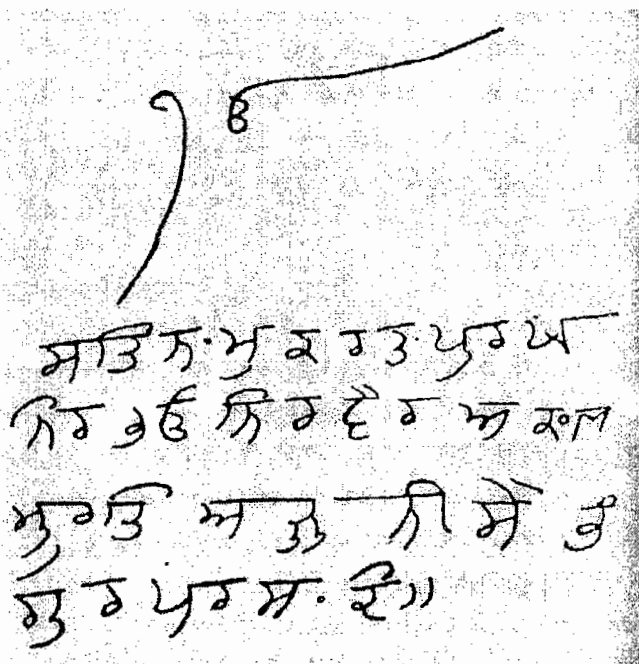 ੴ
ਸਤਿ ਨਾਮੁ ਕਰਤਾ ਪੁਰਖ
ਨਿਰਭਉ ਨਿਰਵੈਰ ਅਕਾਲ
ਮੂਰਤਿ ਅਜੂਨੀ ਸੈਭੰ
ਗੁਰ ਪਰਸਾਦਿ॥